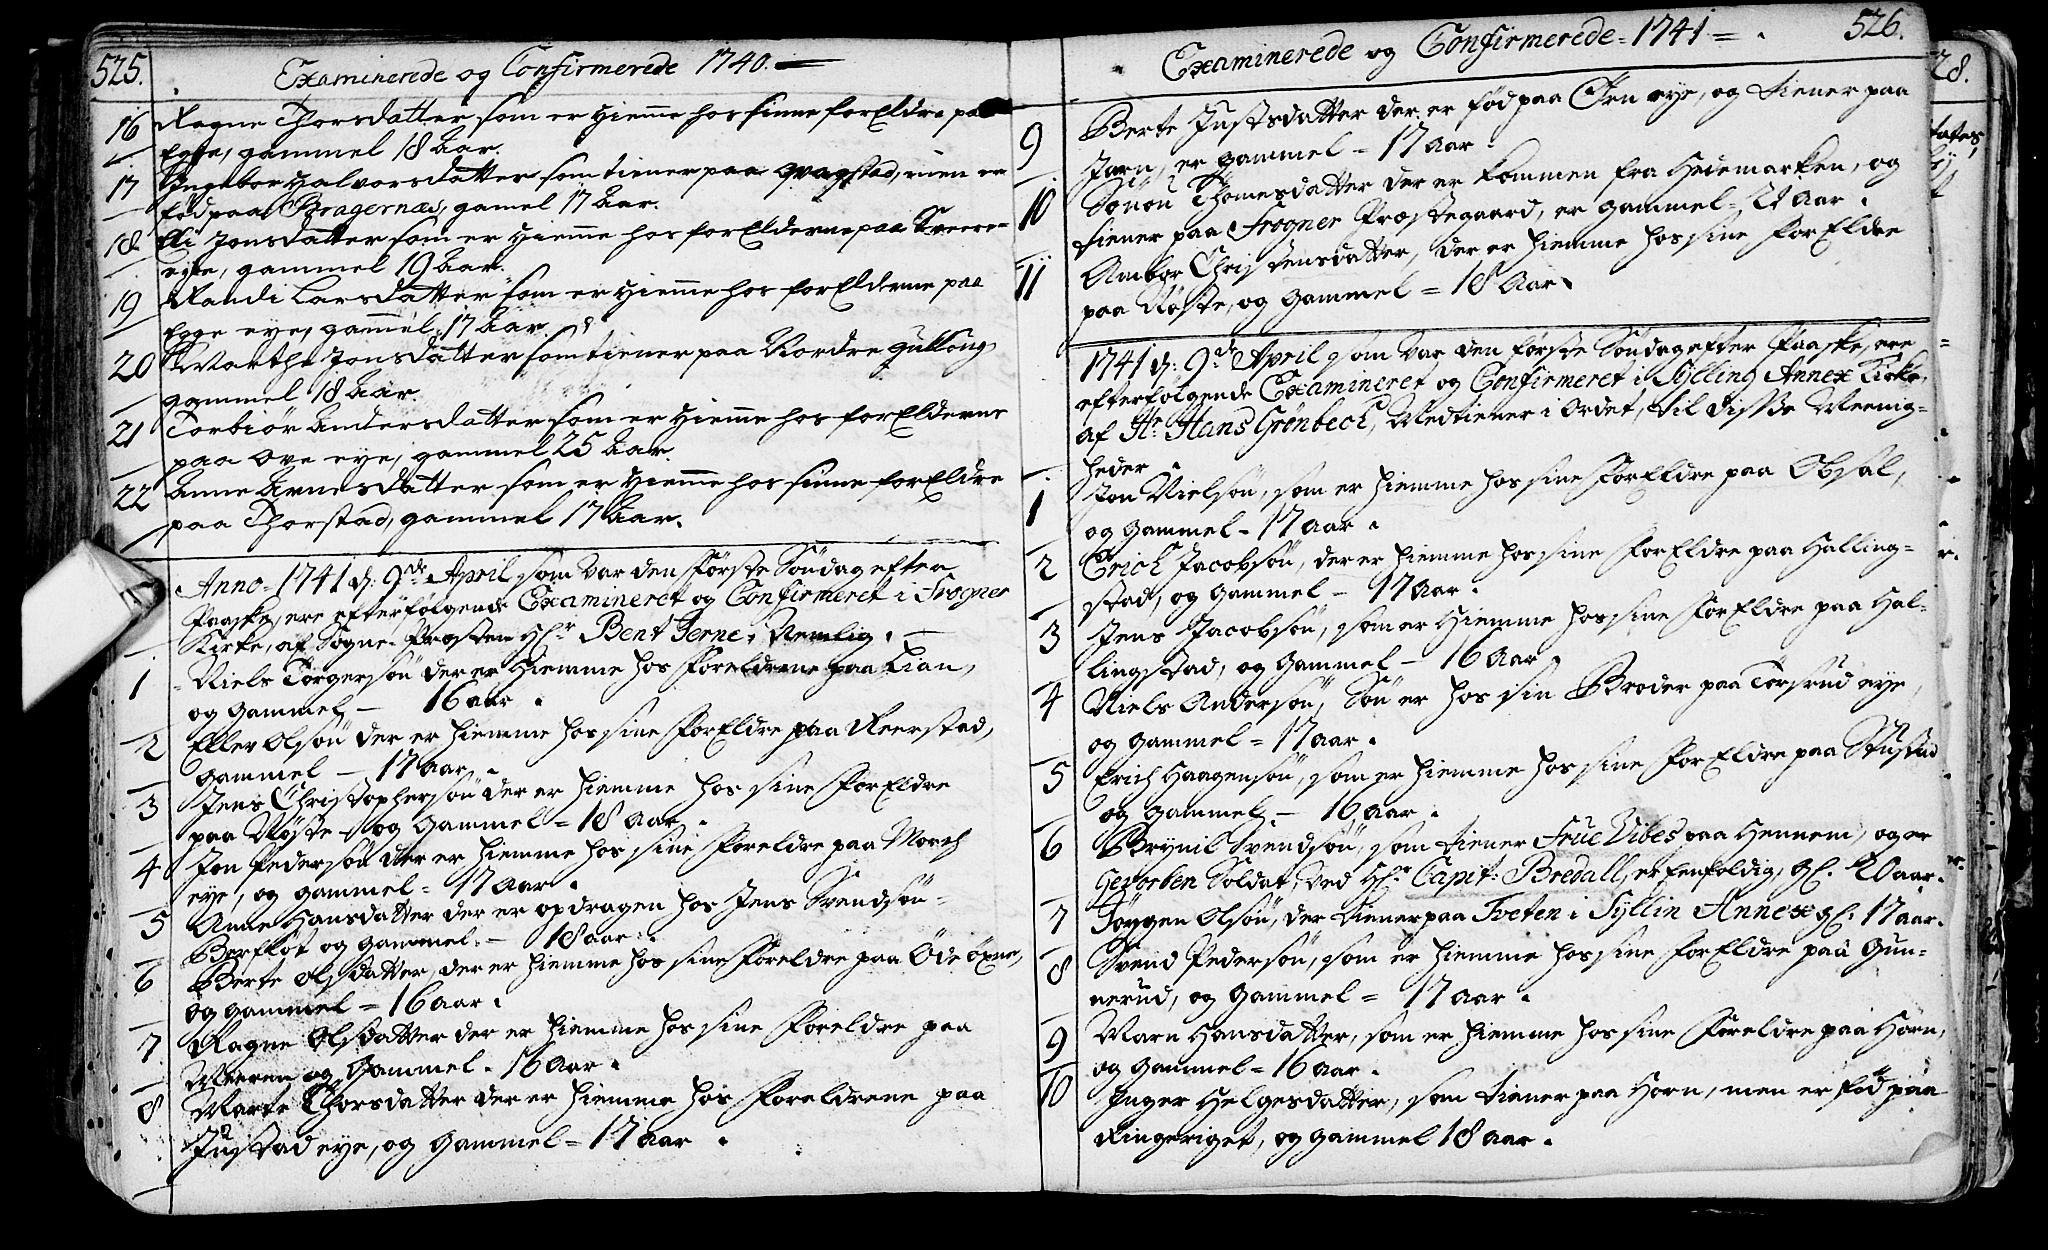 525.
Examinerede og Confirmerede 1740.
16 Ragne Thorsdatter som er Hieme hos sinne forEldre paa
Egge, gammel 18 Aar.
17 Ingebor Halvorsdatter som tiener paa Qvagstad, men er
fød paa Bragernæs, gamel 17 Aar.
18 Eli Jonsdatter som er Hieme hos forElderne paa
eye, gammel 19 Aar.
19 Randi Larsdatter som er Hieme hos forElderne paa
Egge eye, gammel 17 Aar.
20 Marthe Jonsdatter som tiener paa Nordre Gullaug,
gammel 18 Aar.
21 Torbiør Andersdatter som er Hieme hos forElderne
paa Ove eye, gammel 25 Aar.
22 Anne Arnesdatter som er Hieme hos sinne forEldre
paa Thorstad, gammel 17 Aar.
Anno 1741 d: 9de April som var den første Søndag efter
Paaske, ere efterfølgende Examineret og Confirmeret i Frogner
Kirke, af Sogne-Præsten Hr. Bent Ferne, Nemlig.
1 Niels Torgersøn der er Hiemme hos Foreldrene paa Lian,
og Gammel – 16 aar.
2 Eller Olsøn der er hiemme hos sine ForEldre paa Reerstad,
gammel – 17 aar.
3 Jens Christophersøn der er hiemme hos sine ForEldre
paa Røste og Gammel = 18 Aar.
4 Jon Pedersøn der er hiemme hos sine Foreldre paa Morch
eye, og gammel = 17 Aar.
5 Anne Hansdatter der er opdragen hos Jens Svendsøn
og Gammel – 18 aar.
6 Berte Olsdatter, der er hiemme hos sine Foreldre paa Öde öxne,
og gammel = 16 aar.
7 Ragne Olsdatter der er hiemme hos sine Foreldre paa
Meeren og Gammel - 16 Aar.
8 Marte Thorsdatter der er hiemme hos Foreldrene paa
Justad eye, og Gammel = 17 aar.
Examinerede og Confirmerede = 1741 = . 526.
9 Berte Justsdatter der er fød paa Ørn eye, og tiener paa
Jarn, er gammel = 17 Aar.
10 Sønou Thomesdatter der er kommen fra Hedemarken, og
tiener paa Frogner Præstegaard, er gammel = 21 Aar.
11 Ambor Christensdatter, der er hiemme hos sine forEldre
paa Røste, og Gammel = 18 Aar.
1741 d: 9de April som var den første Søndag efter Paaske, ere
efterfølgende Examineret og Confirmeret i Sylling Annex Kirke,
af Hr. Hans Grønbech, Medtiener i Ordet, til disse Meenig-
heder.
1 Jon Nielsøn, som er hiemme hos sine ForEldre paa Obsal,
og Gammel - 17 aar.
2 Erich Jacobsøn, der er hiemme hos sine ForEldre paa Halling-
stad, og Gammel – 17 Aar.
3 Jens Jacobsøn, som er Hiemme hos sine ForEldre paa Hal-
lingstad, og Gammel – 16 Aar.
4 Niels Andersøn, Søn er hos sin Broder paa Torsrud eye,
og gammel = 17 aar.
5 Erich Haagensøn, som er hiemme hos sine ForEldre paa Stustad
og Gammel – 16 aar.
6 Brynil Svendsøn, som tiener Frue Vibes paa Hennem, og er
Gevorben Soldat, ved Hr. Capit: Bredall, er Eenfoldig, gl. 20 aar.
7 Jørgen Olsøn, der tiener paa Tveten i Syllin Annex gl. 17 aar.
8 Svend Pedersøn, som er hiemme hos sine ForEldre paa Gun-
nerud, og Gammel = 17 aar.
9 Marn Hansdatter, som er hiemme hos sine Foreldre paa Horn,
og Gammel = 16 aar.
10 Inger Helgesdatter, som tiener paa Horn, men er fød paa
Ringeriget, og gammel 18 aar.
28.